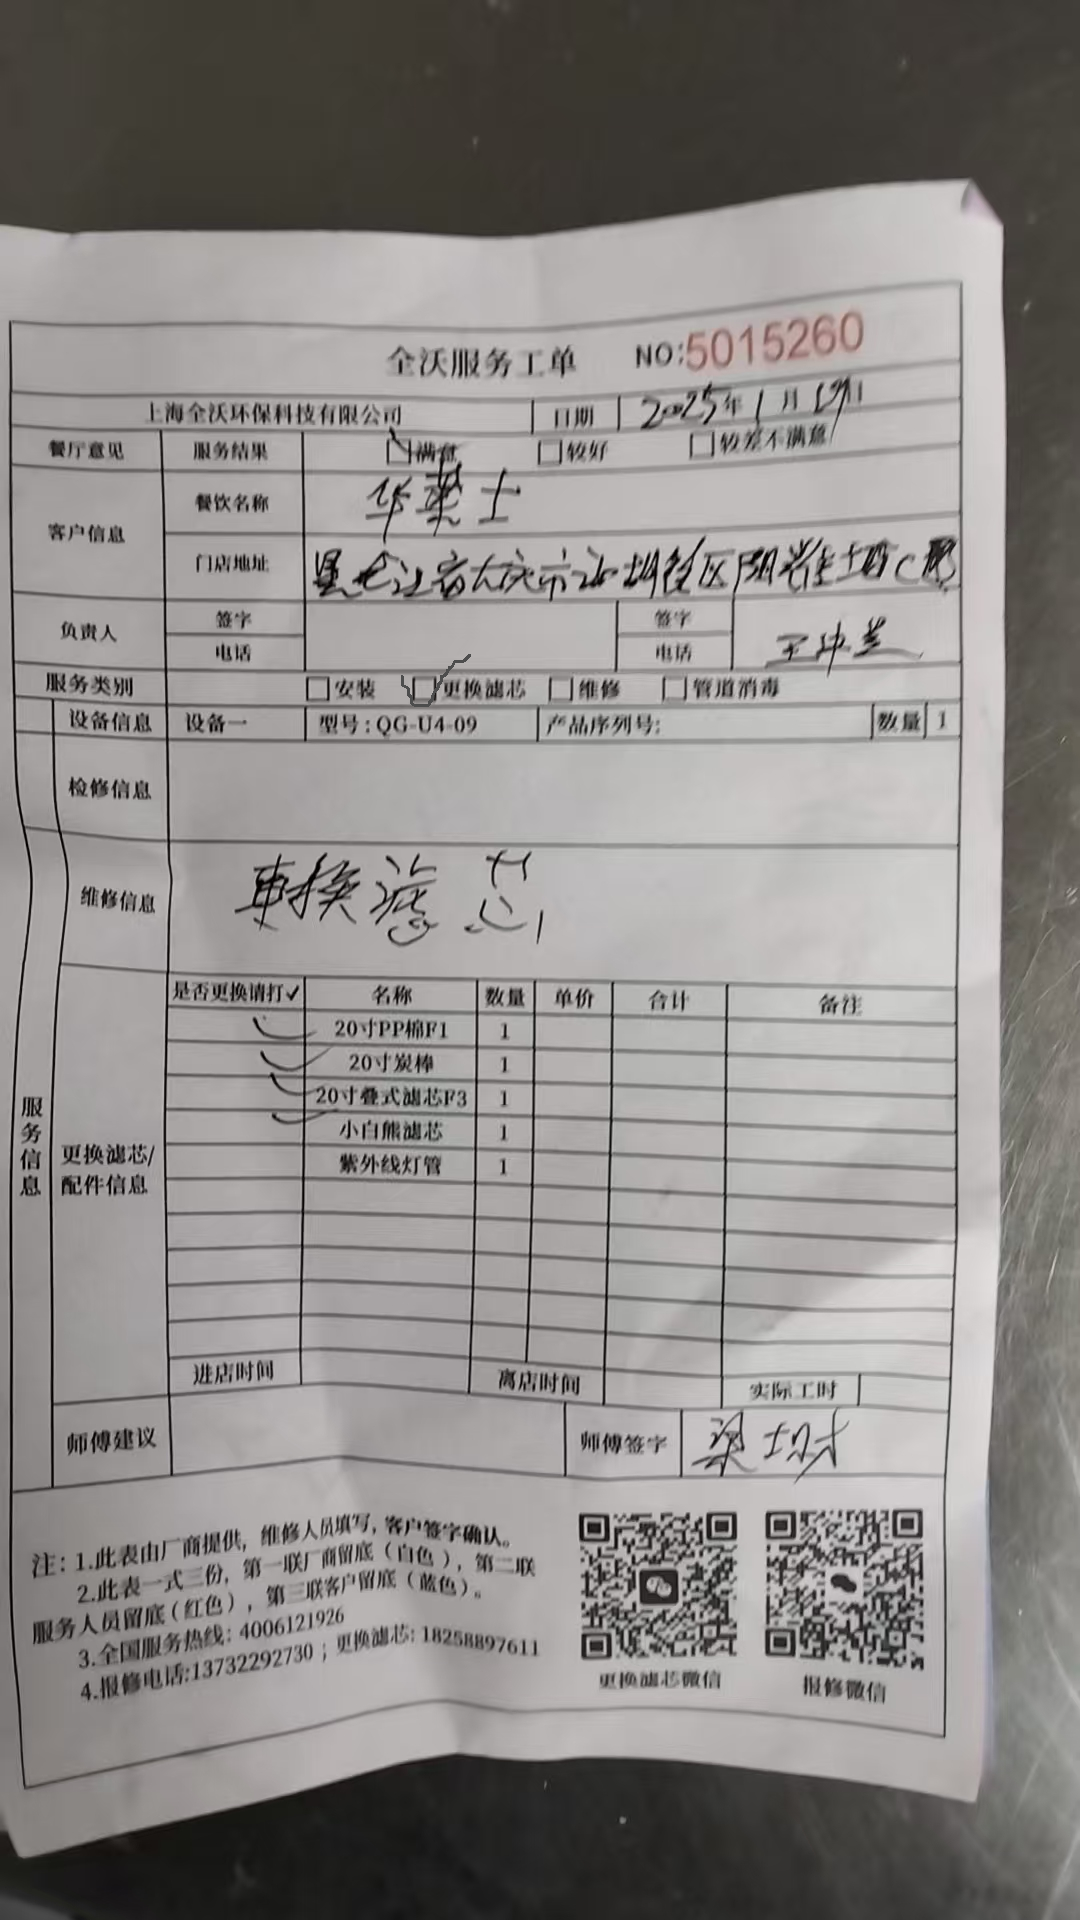 全沃服务工单 NO:5015260
上海全沃环保科技有限公司 日期 2025年1月19日
餐厅意见 服务结果 满意 较好 较差不满意
客户信息 餐饮名称 华莱士
门店地址 黑龙江省大庆市
负责人 签字 签字
电话 电话
服务类别 安装 更换滤芯 维修 管道消毒
设备信息 设备一 型号:QG-U4-09 产品序列号: 数量 1
检修信息
维修信息 更换滤芯
服务信息
更换滤芯/
配件信息
是否更换请打✓ 名称 数量 单价 合计 备注
✓ 20寸PP棉F1 1
✓ 20寸炭棒 1
✓ 20寸叠式滤芯F3 1
✓ 小白熊滤芯 1
紫外线灯管 1
进店时间 离店时间 实际工时
师傅建议 师傅签字
注:1.此表由厂商提供,维修人员填写,客户签字确认。
2.此表一式三份,第一联厂商留底(白色),第二联
服务人员留底(红色),第三联客户留底(蓝色)。
3.全国服务热线:4006121926
4.报修电话:13732292730;更换滤芯:18258897611
更换滤芯微信 报修微信